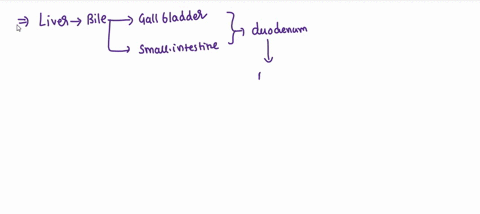 ⇒ Liver → Bile → Gall bladder
→ Small.intestine
} → duodenum
↓